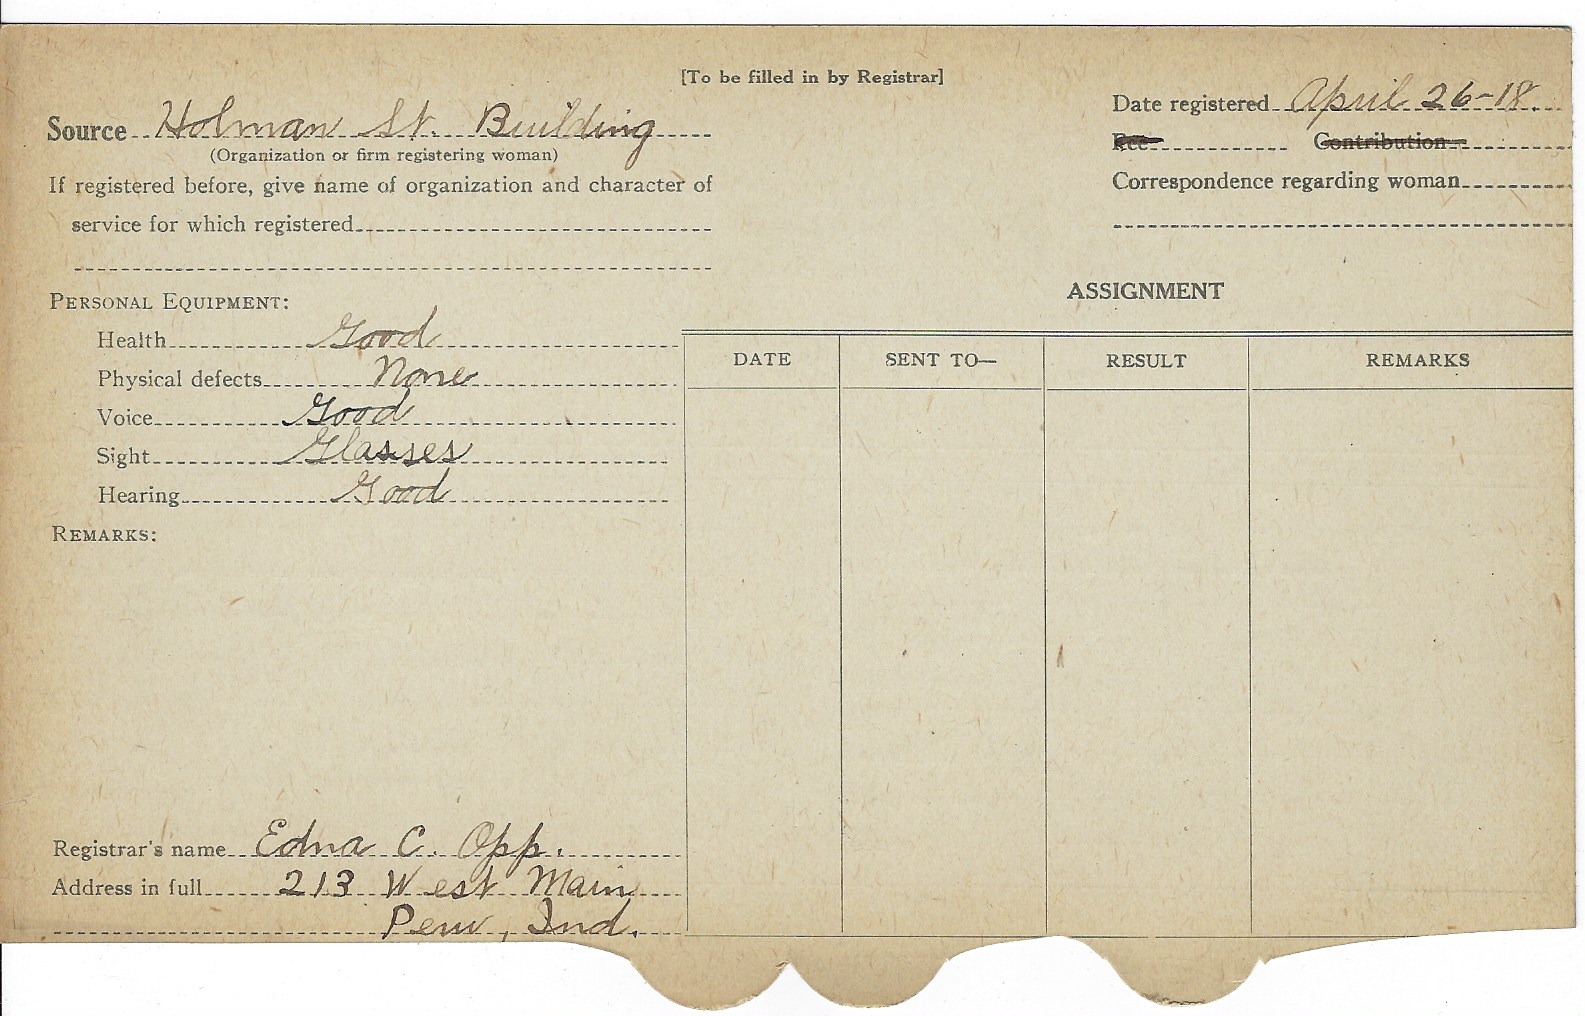 [To be filled in by Registrar]
Source Holman St. Building
(Organization or firm registering woman)
If registered before, give name of organization and character of
service for which registered
Date registered April 26-18.
Fee Contribution
Correspondence regarding woman
PERSONAL EQUIPMENT:
Health Good
Physical defects None
Voice Good
Sight Glasses
Hearing Good
REMARKS:
ASSIGNMENT
DATE SENT TO— RESULT REMARKS
Registrar's name Edna C. Opp.
Address in full 213 West Main
Peru, Ind.